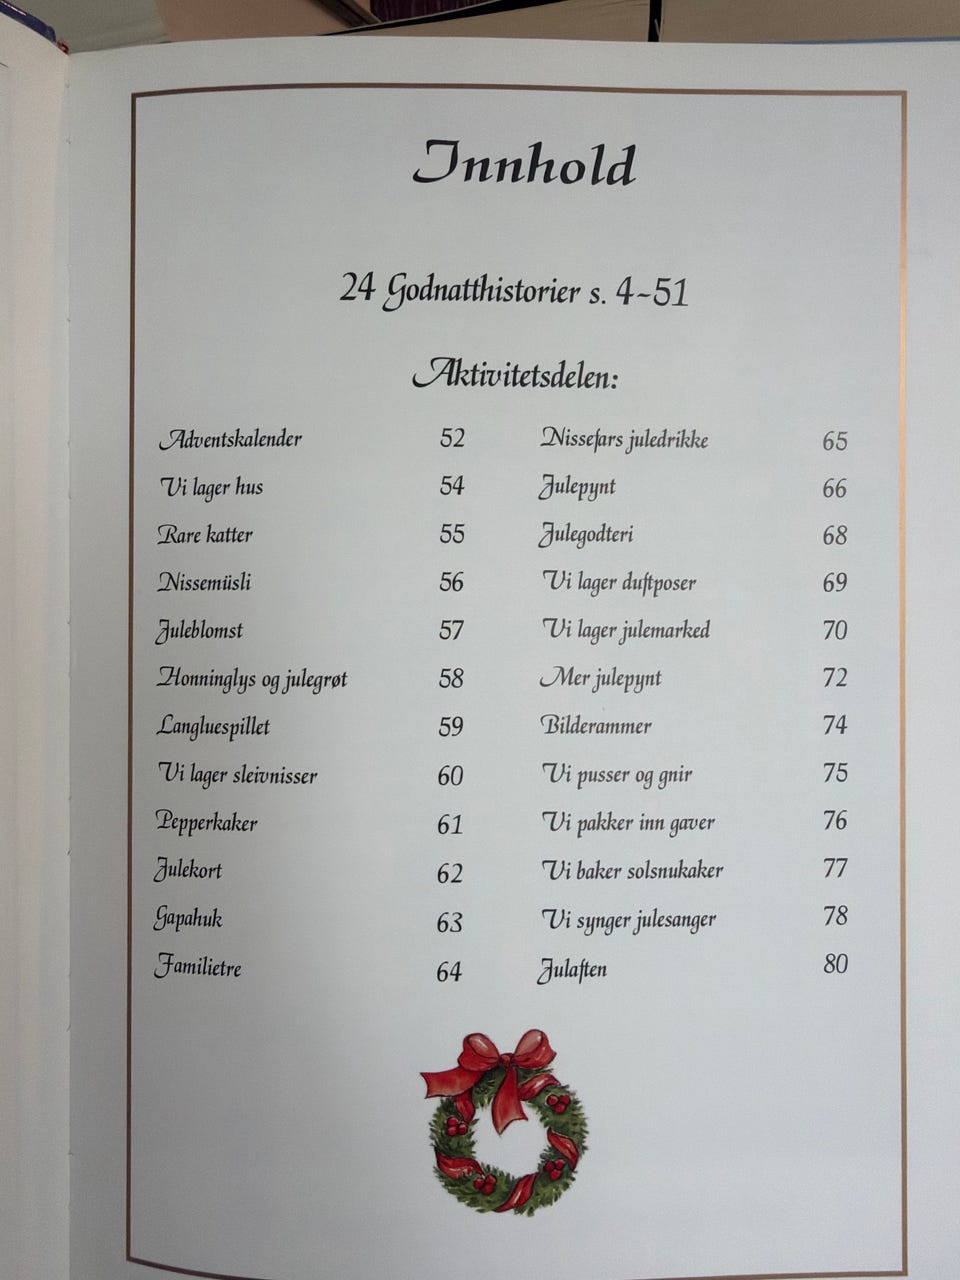 Innhold
24 Godnatthistorier s. 4-51
Aktivitetsdelen:
Adventskalender 52
Vi lager hus 54
Rare katter 55
Nissemüsli 56
Juleblomst 57
Honninglys og julegrøt 58
Langluespillet 59
Vi lager sleivnisser 60
Pepperkaker 61
Julekort 62
Gapahuk 63
Familietre 64
Nissefars juledrikke 65
Julepynt 66
Julegodteri 68
Vi lager duftposer 69
Vi lager julemarked 70
Mer julepynt 72
Bilderammer 74
Vi pusser og gnir 75
Vi pakker inn gaver 76
Vi baker solsnukaker 77
Vi synger julesanger 78
Julaften 80